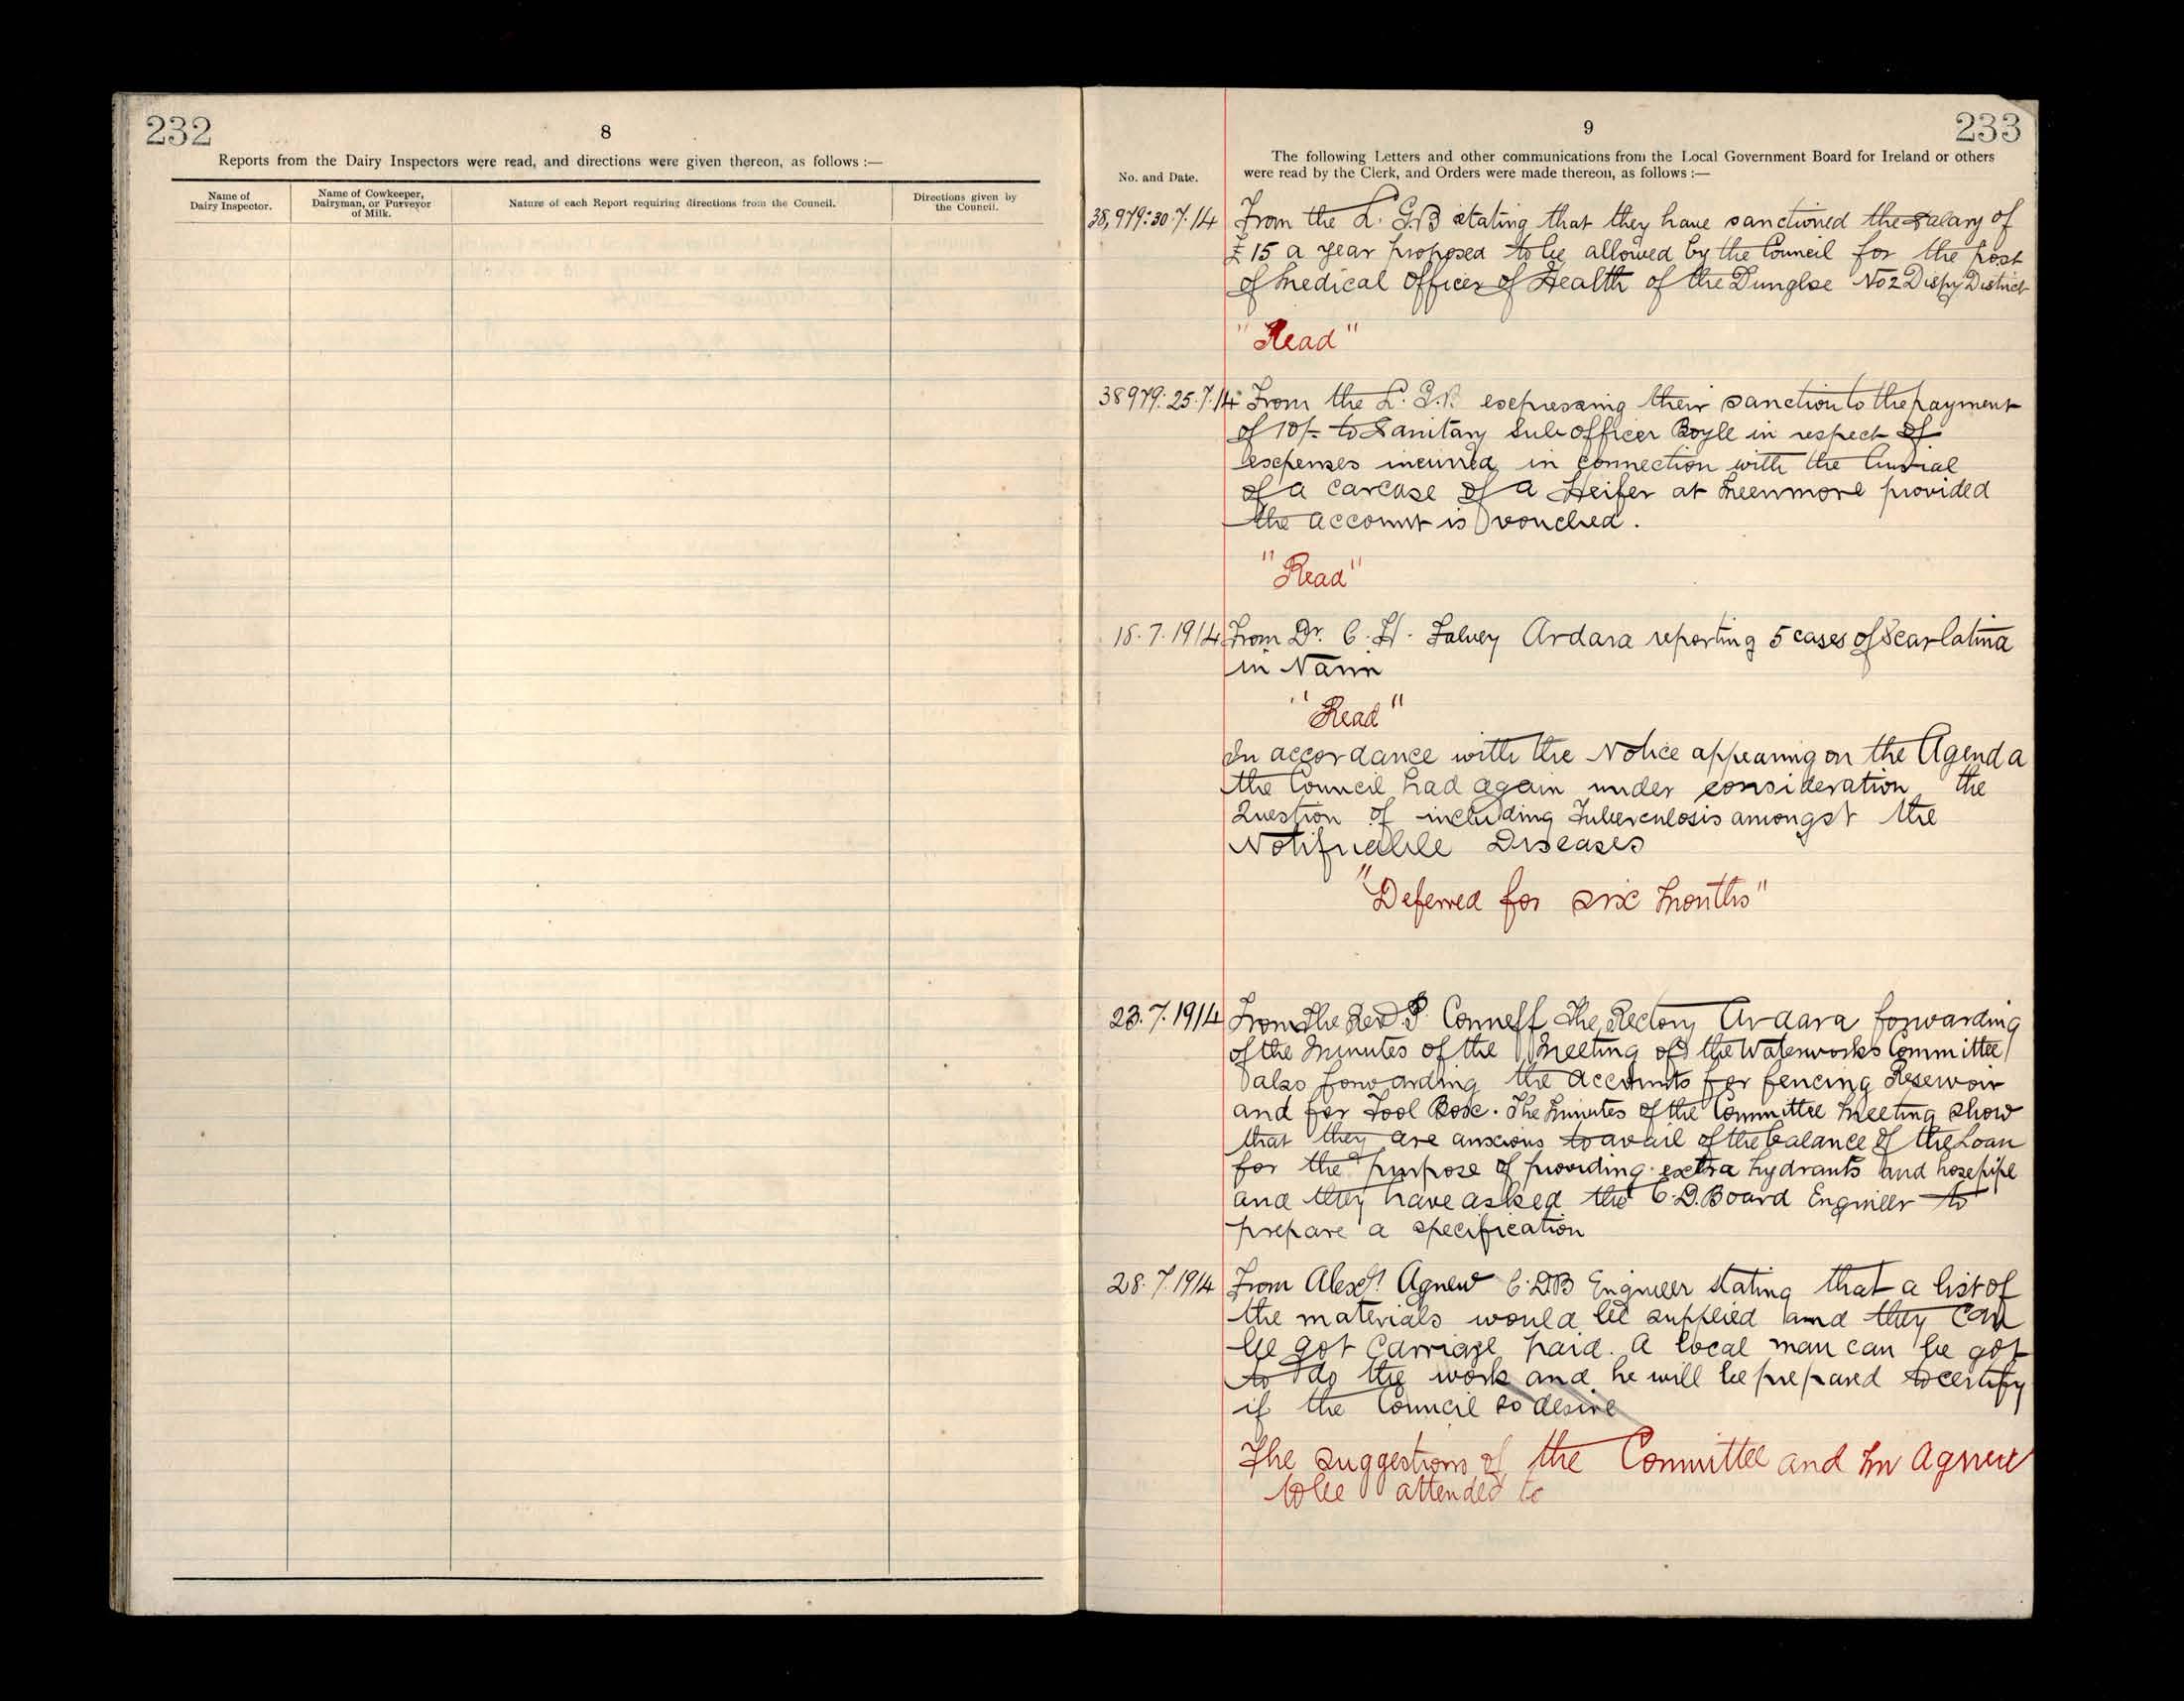 232
8
Reports from the Dairy Inspectors were read, and directions were given thereon, as follows :—
Name of
Dairy Inspector.
Name of Cowkeeper,
Dairyman, or Purveyor
of Milk.
Nature of each Report requiring directions from the Council.
Directions given by
the Council.
9
233
The following Letters and other communications from the Local Government Board for Ireland or others
were read by the Clerk, and Orders were made thereon, as follows :—
No. and Date.
38,979: 30.7.14 From the L. G.B stating that they have sanctioned the Salary of
£15 a year proposed to be allowed by the Council for the post
of Medical Officer of Health of the Dungloe No 2 Dispy District
"Read"
38979: 25.7.14 From the L. G.B. expressing their sanction to the payment
of 10/= to Sanitary Sub officer Boyle in respect of
expenses incurred in connection with the burial
of a carcase of a Heifer at Meenmore provided
the account is vouched.
"Read"
18.7.1914 From Dr. C. H. Falvey Ardara reporting 5 cases of Scarlatina
in Narin
"Read"
In accordance with the Notice appearing on the Agenda
the Council had again under consideration the
Question of including Tuberculosis amongst the
Notifiable Diseases
"Deferred for six Months"
23.7.1914 From the Revd. P. Conneff The Rectory Ardara forwarding
of the Minutes of the Meeting of the Waterworks Committee
also forwarding the accounts for fencing Reservoir
and for Tool Box. The Minutes of the Committee Meeting show
that they are anxious to avail of the balance of the Loan
for the purpose of providing extra hydrants and hosepipe
and they have asked the C.D.Board Engineer to
prepare a specification
28.7.1914 From Alexr. Agnew C.D.B Engineer stating that a list of
the materials would be supplied and they can
be got Carriage paid. A local man can be got
to do the work and he will be prepared to certify
if the Council so desire
The suggestions of the Committee and Mr Agnew
to be attended to